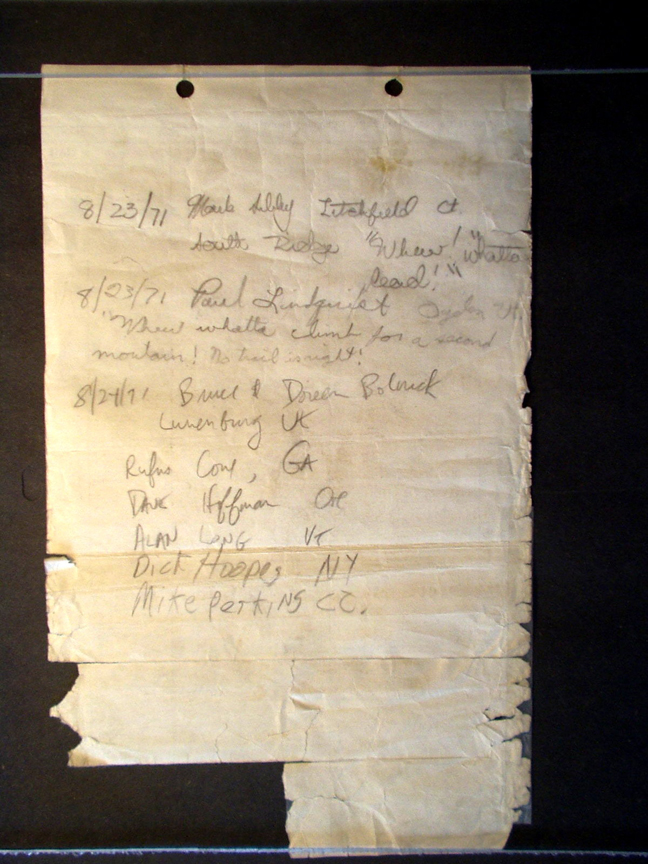 8/23/71 Litchfield Ct.
South Ridge "Whew! whatta
lead!"
8/23/71 Paul Lindquist
"Whew whatta climb for a second
mountain! No trail is right!
8/24/71 Bruce & Doreen
Lunenburg Vt
Rufus Cone, GA
DAVE Hoffman OH
ALAN LONG VT
Dick Hoopes NY
Mike Perkins CT.